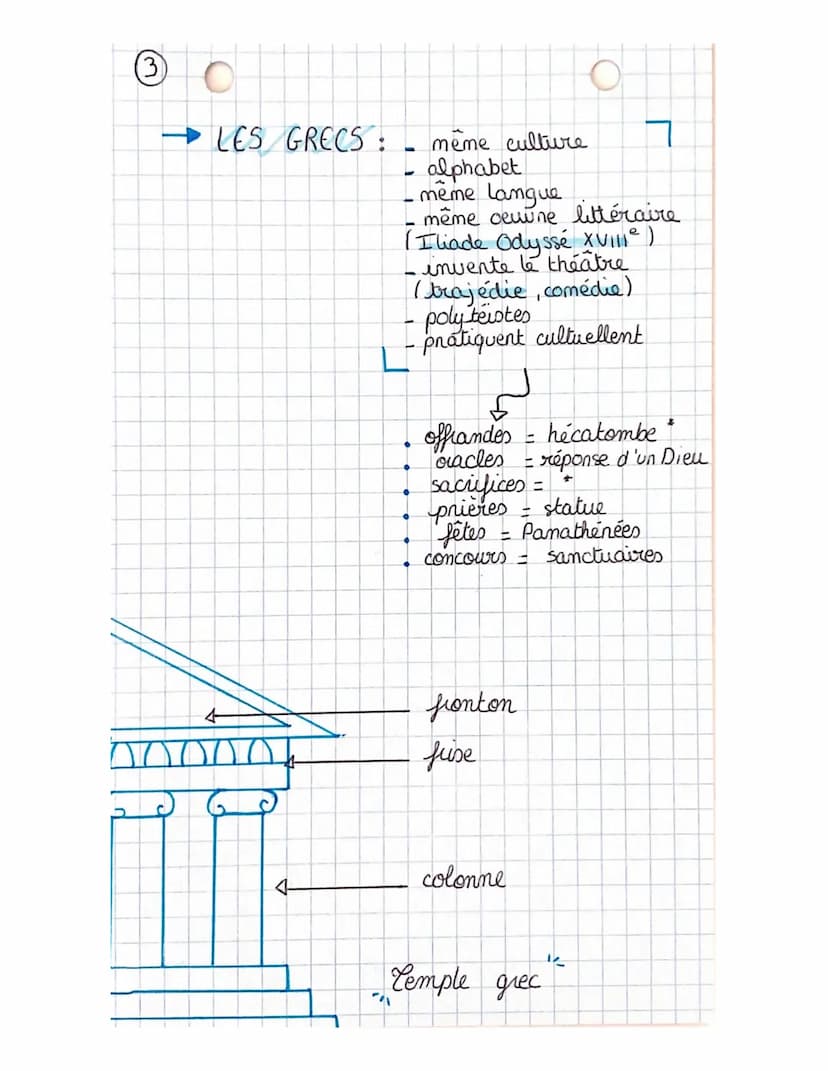 3
→ LES GRECS : - même culture
- alphabet
- même langue
- même oeuvre littéraire
(Iliade Odyssé XVIIIe)
- invente le théâtre
(trajédie, comédie)
- polytéistes
- pratiquent cultuellent
• offrandes = hécatombe *
• oracles = réponse d'un Dieu
• sacrifices = *
• prières = statue
• fêtes = Panathénées
• concours = sanctuaires
fronton
frise
colonne
Temple grec